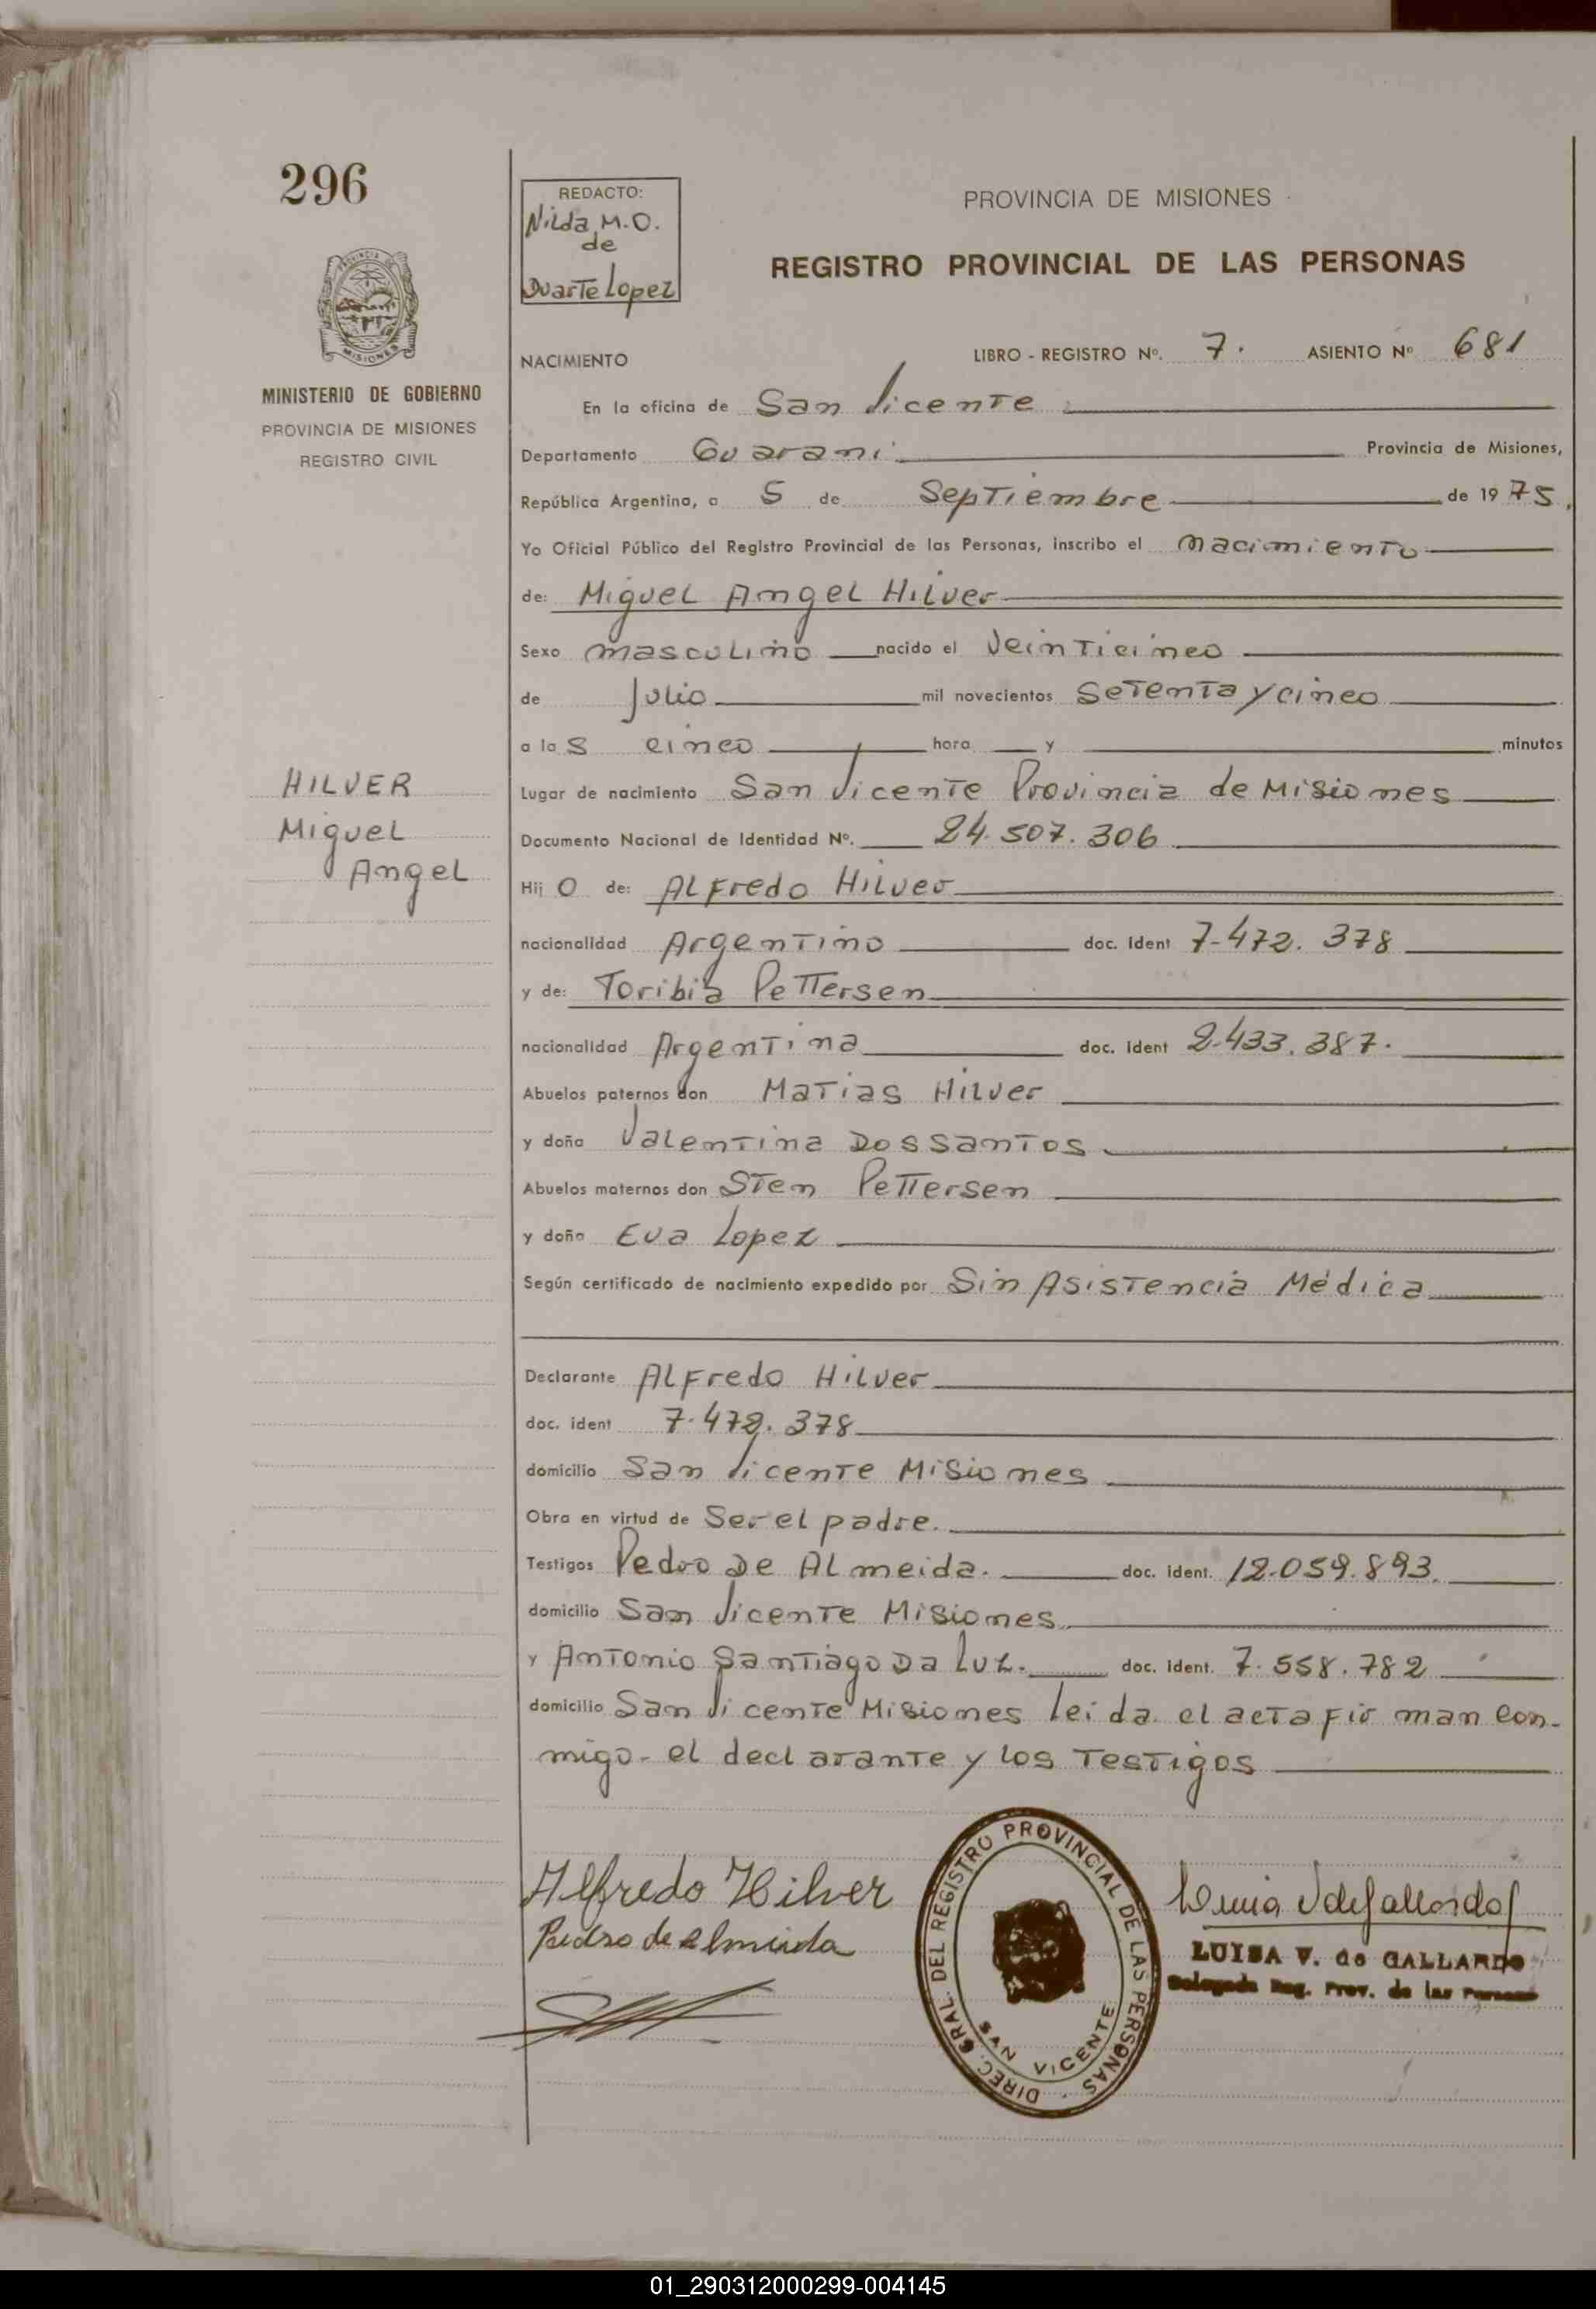 296
REDACTO:
Nilda M.O.
de
Duarte Lopez
PROVINCIA DE MISIONES
REGISTRO PROVINCIAL DE LAS PERSONAS
PROVINCIA DE
MISIONES
MINISTERIO DE GOBIERNO
PROVINCIA DE MISIONES
REGISTRO CIVIL
NACIMIENTO LIBRO - REGISTRO Nº. 7. ASIENTO Nº 681
En la oficina de San Vicente
Departamento Guarani Provincia de Misiones,
República Argentina, a 5 de Septiembre de 1975.
Yo Oficial Público del Registro Provincial de las Personas, inscribo el nacimiento
de: Miguel Angel Hilver
Sexo masculino nacido el Veinticinco
de Julio mil novecientos Setenta y cinco
a las cinco hora y minutos
Lugar de nacimiento San Vicente Provincia de Misiones
Documento Nacional de Identidad Nº. 24.507.306
HILVER
Miguel
Angel
Hijo de: Alfredo Hilver
nacionalidad Argentino doc. ident 7-472.378
y de: Toribia Pettersen
nacionalidad Argentina doc. ident 2.433.387.
Abuelos paternos don Matias Hilver
y doña Valentina Dos Santos
Abuelos maternos don Sten Pettersen
y doña Eva Lopez
Según certificado de nacimiento expedido por Sin Asistencia Médica
Declarante Alfredo Hilver
doc. ident 7.472.378
domicilio San Vicente Misiones
Obra en virtud de Ser el padre.
Testigos Pedro De Almeida. doc. ident. 12.059.893.
domicilio San Vicente Misiones
y Antonio Santiago Da Luz. doc. ident. 7.558.782
domicilio San Vicente Misiones leida el acta firman con-
migo el declarante y los Testigos
Alfredo Hilver
Pedro de Almeida
DIREC. GRAL. DEL REGISTRO PROVINCIAL DE LAS PERSONAS
SAN VICENTE
LUISA V. de GALLARDO
Delegada Reg. Prov. de las Personas
01_290312000299-004145